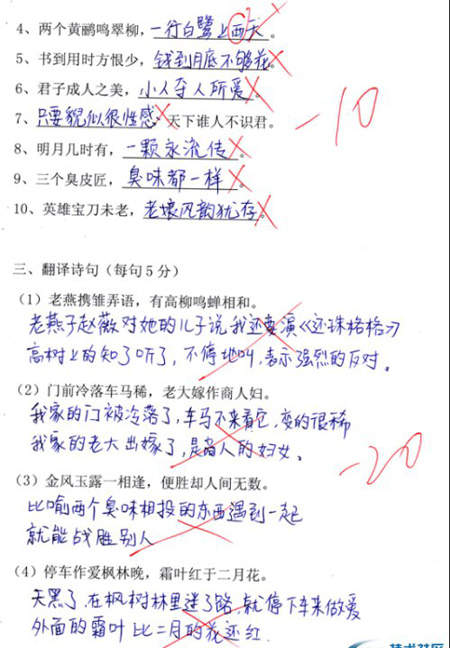 4、两个黄鹂鸣翠柳，一行白鹭上西天。
5、书到用时方恨少，钱到月底不够花。
6、君子成人之美，小人夺人所爱。
7、只要貌似很性感，天下谁人不识君。
8、明月几时有，一颗永流传。
9、三个臭皮匠，臭味都一样。
10、英雄宝刀未老，老娘风韵犹存。
-10
三、翻译诗句（每句5分）
（1）老燕携雏弄语，有高柳鸣蝉相和。
老燕子赵薇对她的儿子说我还要演《还珠格格》
高树上的知了听了，不停地叫，表示强烈的反对。
（2）门前冷落车马稀，老大嫁作商人妇。
我家的门被冷落了，车马不来看它，变的很稀
我家的老大出嫁了，是商人的妇女。
-20
（3）金风玉露一相逢，便胜却人间无数。
比喻两个臭味相投的东西遇到一起
就能战胜别人
（4）停车作爱枫林晚，霜叶红于二月花。
天黑了，在枫树林里迷了路，就停下车来做爱
外面的霜叶比二月的花还红.